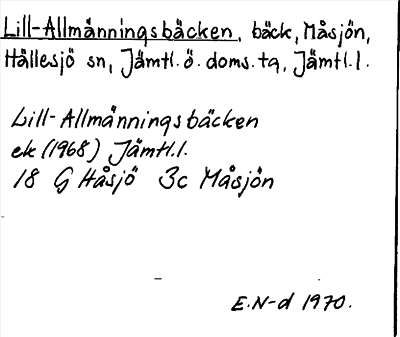 Lill-Allmänningsbäcken, bäck, Måsjön,
Hällesjö sn, Jämtl. ö. doms. tg, Jämtl. l.
Lill-Allmänningsbäcken
ek (1968) Jämtl. l.
18 G Håsjö 3c Måsjön
E. N-d 1970.